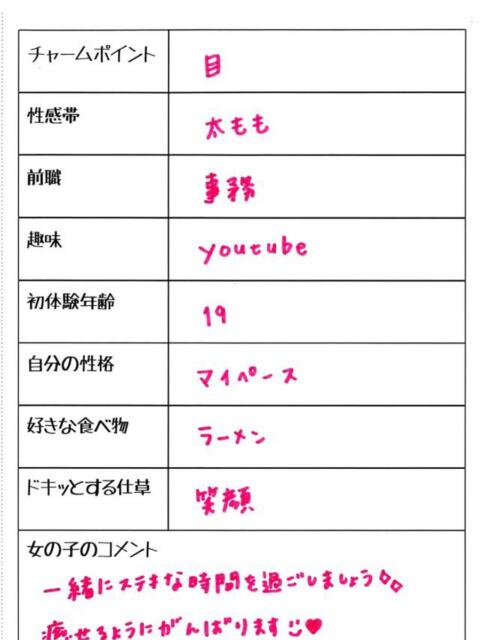 チャームポイント 目
性感帯 太もも
前職 事務
趣味 youtube
初体験年齢 19
自分の性格 マイペース
好きな食べ物 ラーメン
ドキッとする仕草 笑顔
女の子のコメント
一緒にステキな時間を過ごしましょう
癒せるようにがんばります